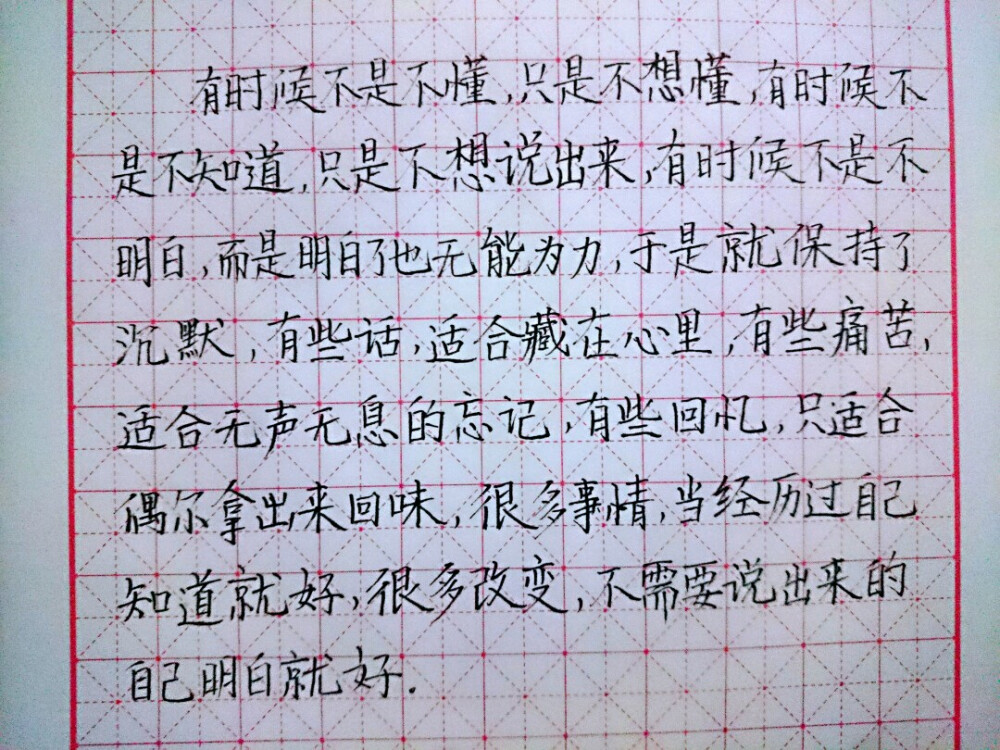 有时候不是不懂,只是不想懂,有时候不
是不知道,只是不想说出来,有时候不是不
明白,而是明白了也无能为力,于是就保持了
沉默,有些话,适合藏在心里,有些痛苦,
适合无声无息的忘记,有些回忆,只适合
偶尔拿出来回味,很多事情,当经历过自己
知道就好,很多改变,不需要说出来的
自己明白就好.